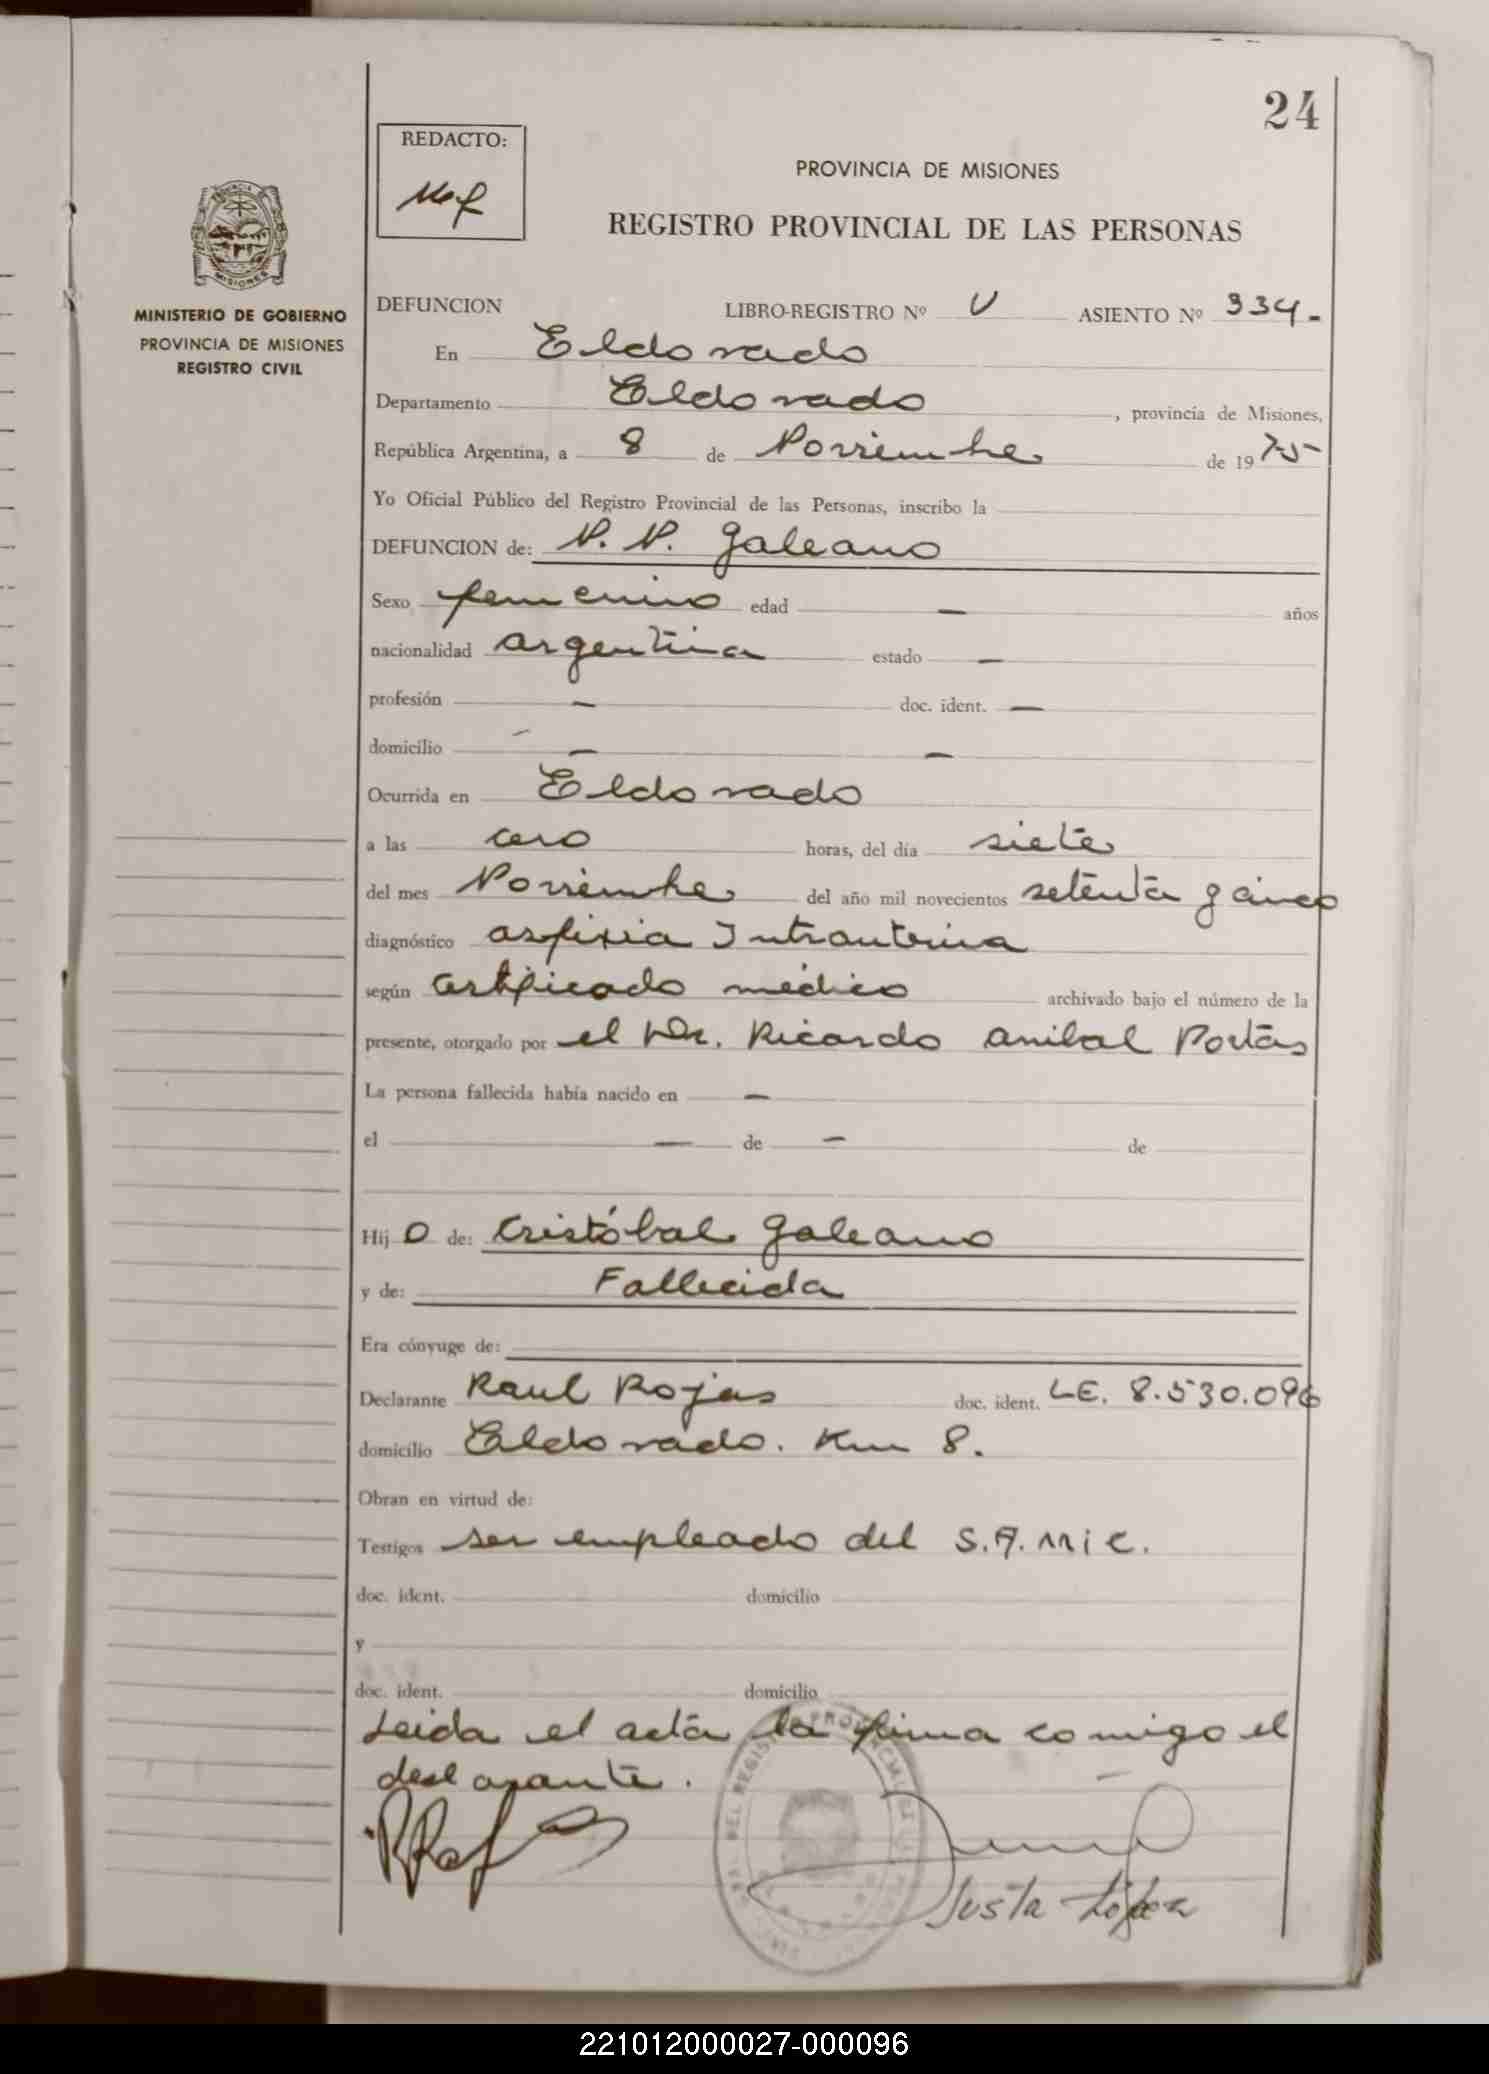 24
REDACTO:
PROVINCIA DE MISIONES
REGISTRO PROVINCIAL DE LAS PERSONAS
MINISTERIO DE GOBIERNO
PROVINCIA DE MISIONES
REGISTRO CIVIL
DEFUNCION LIBRO-REGISTRO Nº V ASIENTO Nº 334.-
En Eldorado
Departamento Eldorado, provincia de Misiones,
República Argentina, a 8 de Noviembre de 1975
Yo Oficial Público del Registro Provincial de las Personas, inscribo la
DEFUNCION de: N. N. Galeano
Sexo femenino edad — años
nacionalidad argentina estado —
profesión — doc. ident. —
domicilio — —
Ocurrida en Eldorado
a las cero horas, del día siete
del mes Noviembre del año mil novecientos setenta y cinco
diagnóstico asfixia Intrauterina
según certificado médico archivado bajo el número de la
presente, otorgado por el Dr. Ricardo Anibal Portas
La persona fallecida había nacido en —
el — de — de
Hij o de: Cristóbal Galeano
y de: Fallecida
Era cónyuge de:
Declarante Raul Rojas doc. ident. LE. 8.530.096
domicilio Eldorado. Km 8.
Obran en virtud de:
Testigos ser empleado del S.A.MIC.
doc. ident. domicilio
y
doc. ident. domicilio
Leida el acta la firma comigo el
declarante.
Justa López
221012000027-000096